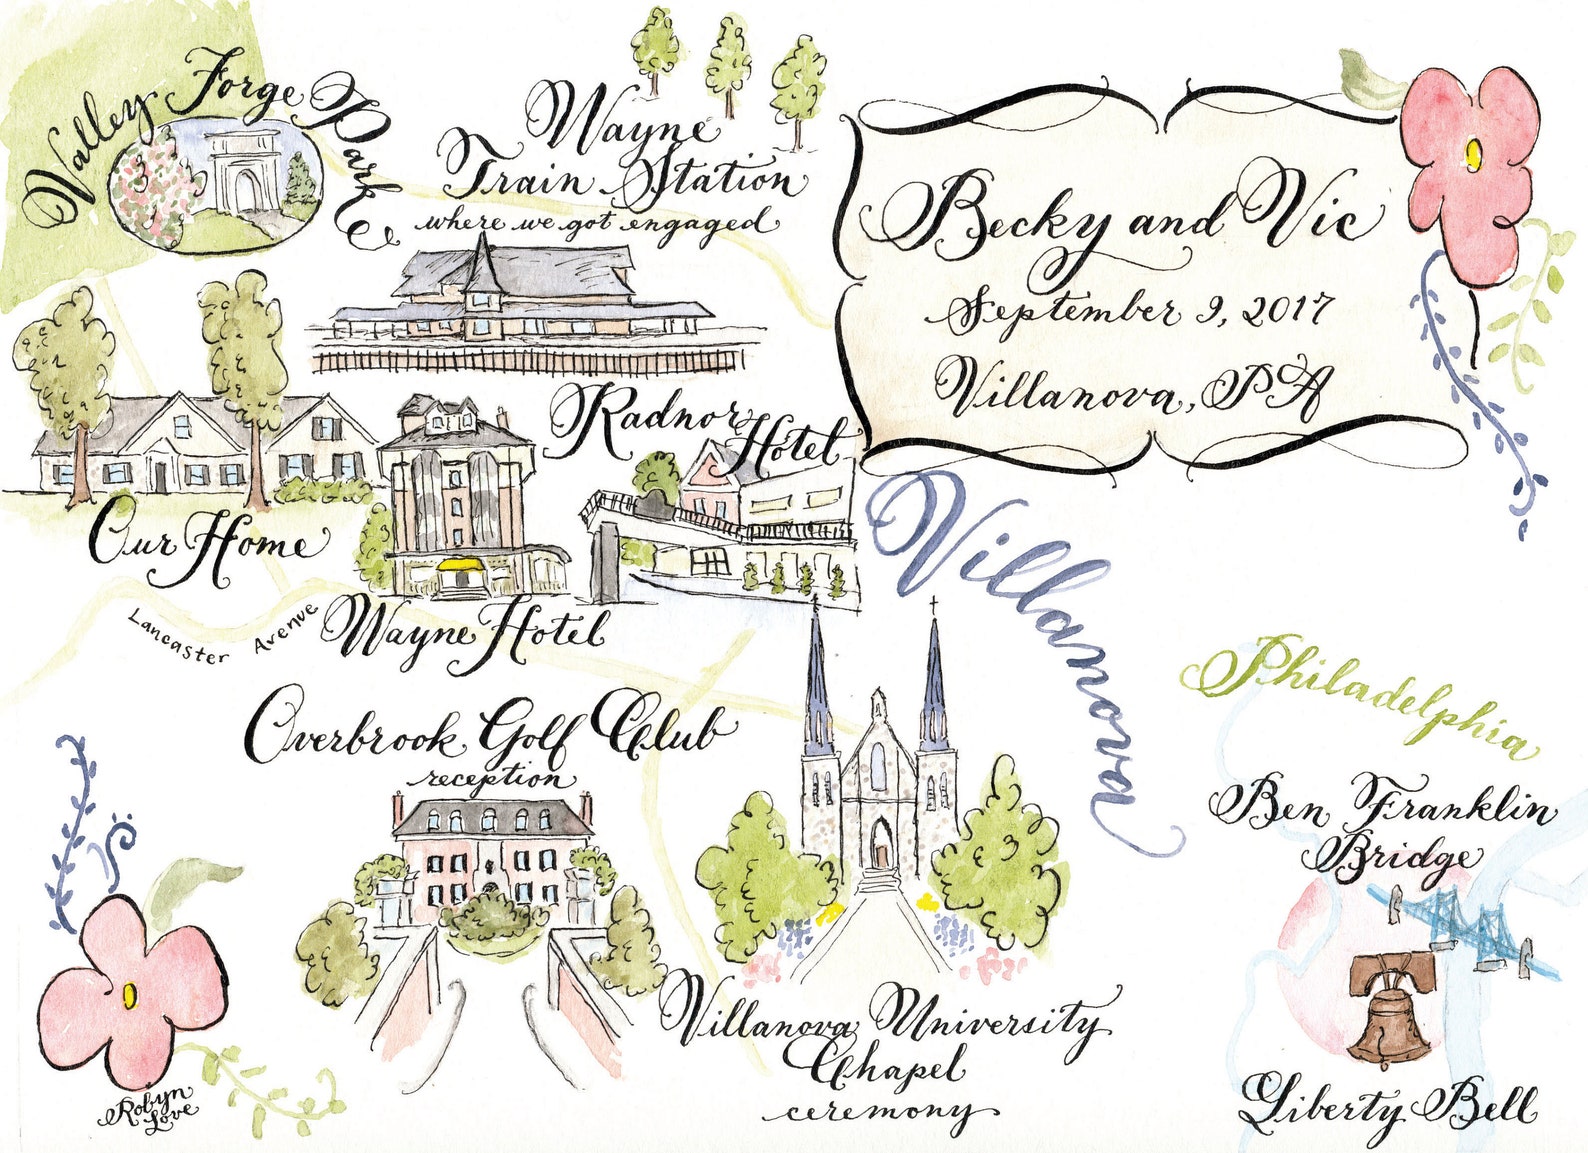 Valley Forge Park
Wayne
Train Station
where we got engaged
Becky and Vic
September 9, 2017
Villanova, PA
Radnor
Hotel
Our Home
Wayne Hotel
Lancaster Avenue
Villanova
Philadelphia
Overbrook Golf Club
reception
Ben Franklin
Bridge
Villanova University
Chapel
ceremony
Liberty Bell
Robyn
Love